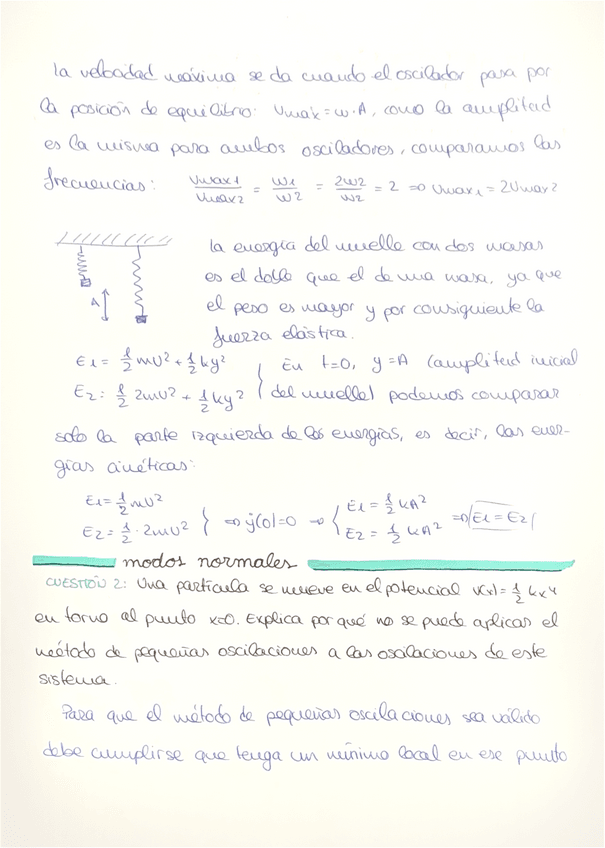 la velocidad máxima se da cuando el oscilador pasa por
la posición de equilibrio: Vmáx = ω·A, como la amplitud
es la misma para ambos osciladores, comparamos las
frecuencias: Vmax1/Vmax2 = ω1/ω2 = 2ω2/ω2 = 2 ⇒ Vmax1 = 2Vmax2
la energía del muelle con dos masas
es el doble que el de una masa, ya que
A
el peso es mayor y por consiguiente la
fuerza elástica.
E1 = 1/2 mv² + 1/2 ky² } En t=0, y=A (amplitud inicial
E2 = 1/2 2mv² + 1/2 ky² } del muelle) podemos comparar
solo la parte izquierda de las energías, es decir, las ener-
gías cinéticas:
E1 = 1/2 mv² } ⇒ ẏ(0)=0 → { E1 = 1/2 kA² ⇒ E1 = E2
E2 = 1/2 · 2mv² } { E2 = 1/2 kA²
modos normales
CUESTIÓN 2: Una partícula se mueve en el potencial V(x) = 1/2 kx⁴
en torno al punto x=0. Explica por qué no se puede aplicar el
método de pequeñas oscilaciones a las oscilaciones de este
sistema.
Para que el método de pequeñas oscilaciones sea válido
debe cumplirse que tenga un mínimo local en ese punto